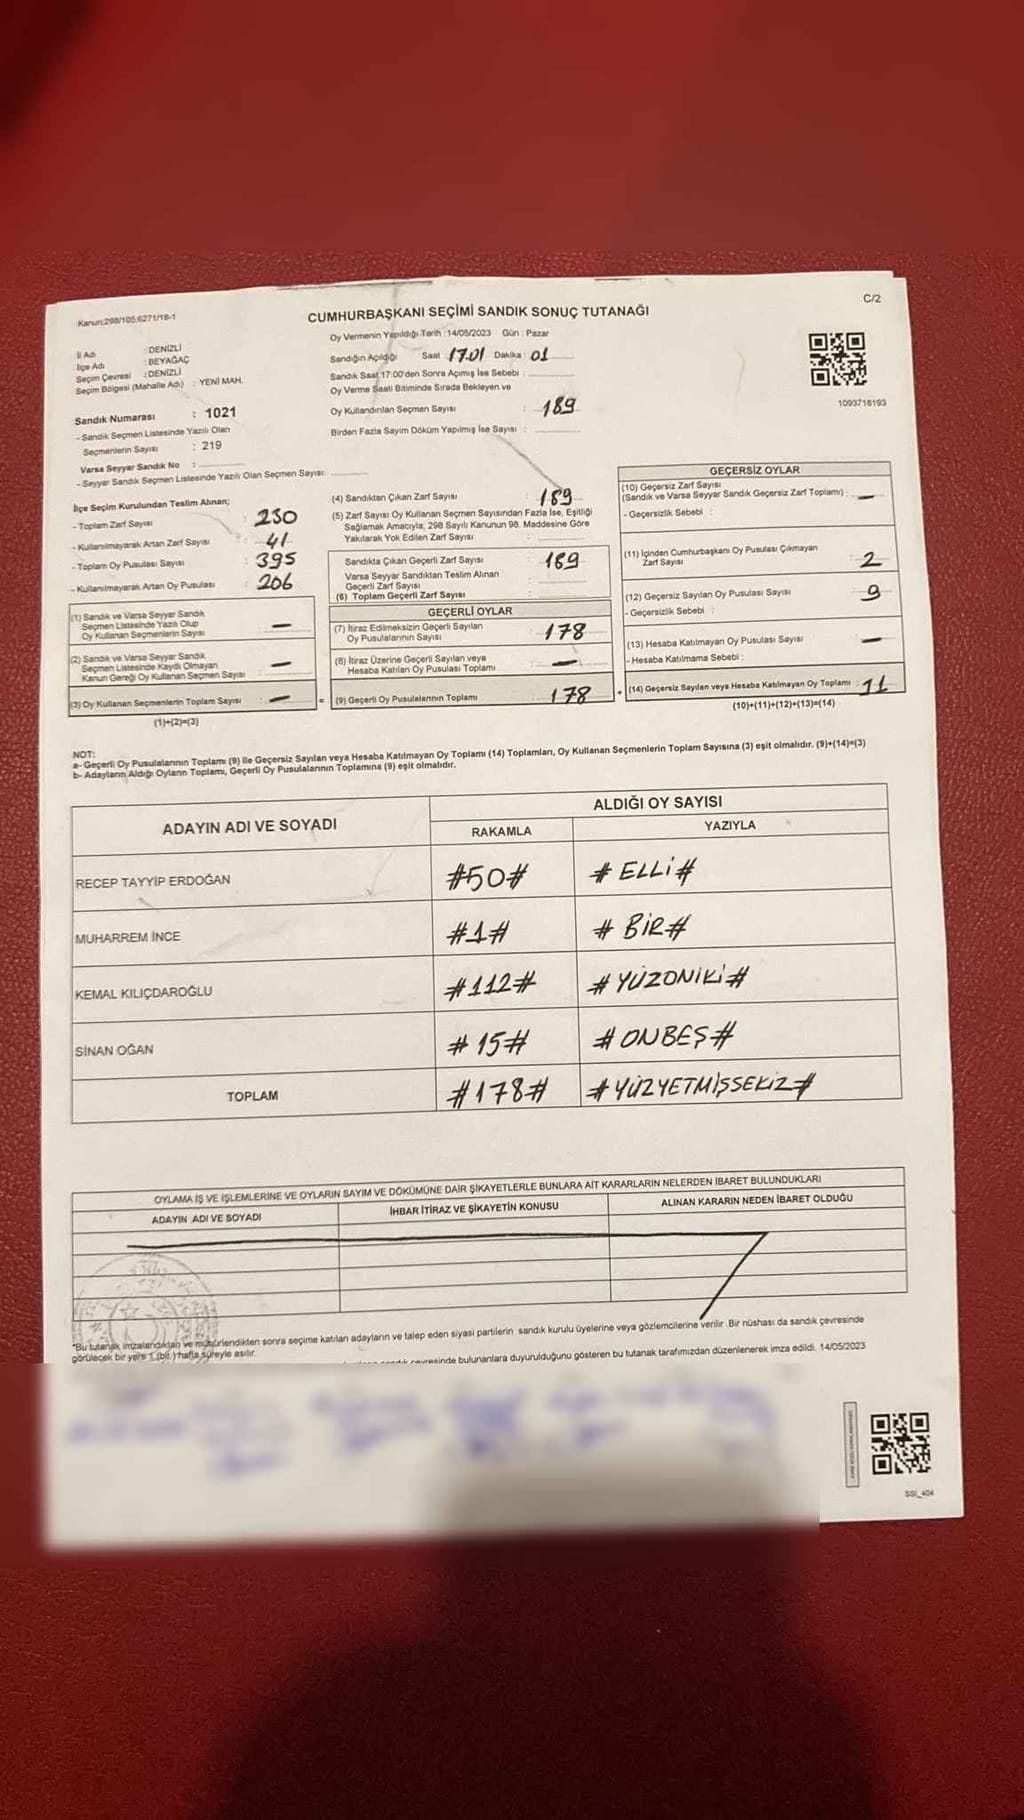 Kanun:298/105,6271/18-1
C/2
CUMHURBAŞKANI SEÇİMİ SANDIK SONUÇ TUTANAĞI
Oy Vermenin Yapıldığı Tarih : 14/05/2023 Gün : Pazar
İl Adı : DENİZLİ
İlçe Adı : BEYAĞAÇ
Seçim Çevresi : DENİZLİ
Seçim Bölgesi (Mahalle Adı) : YENİ MAH.
Sandığın Açıldığı Saat 17.01 Dakika : 01
Sandık Saat 17:00'den Sonra Açımış İse Sebebi :
Oy Verme Saati Bitiminde Sırada Bekleyen ve
Oy Kullandırılan Seçmen Sayısı : 189
Birden Fazla Sayım Döküm Yapılmış İse Sayısı :
1093716193
Sandık Numarası : 1021
- Sandık Seçmen Listesinde Yazılı Olan
Seçmenlerin Sayısı : 219
Varsa Seyyar Sandık No :
- Seyyar Sandık Seçmen Listesinde Yazılı Olan Seçmen Sayısı:
İlçe Seçim Kurulundan Teslim Alınan;
- Toplam Zarf Sayısı : 230
- Kullanılmayarak Artan Zarf Sayısı : 41
- Toplam Oy Pusulası Sayısı : 395
- Kullanılmayarak Artan Oy Pusulası : 206
(1) Sandık ve Varsa Seyyar Sandık
Seçmen Listesinde Yazılı Olup
Oy Kullanan Seçmenlerin Sayısı : —
(2) Sandık ve Varsa Seyyar Sandık
Seçmen Listesinde Kaydı Olmayan
Kanun Gereği Oy Kullanan Seçmen Sayısı : —
(3) Oy Kullanan Seçmenlerin Toplam Sayısı : — =
(1)+(2)=(3)
(4) Sandıktan Çıkan Zarf Sayısı : 189
(5) Zarf Sayısı Oy Kullanan Seçmen Sayısından Fazla İse, Eşitliği
Sağlamak Amacıyla, 298 Sayılı Kanunun 98. Maddesine Göre
Yakılarak Yok Edilen Zarf Sayısı :
Sandıkta Çıkan Geçerli Zarf Sayısı : 189
Varsa Seyyar Sandıktan Teslim Alınan
Geçerli Zarf Sayısı :
(6) Toplam Geçerli Zarf Sayısı :
GEÇERLİ OYLAR
(7) İtiraz Edilmeksizin Geçerli Sayılan
Oy Pusulalarının Sayısı : 178
(8) İtiraz Üzerine Geçerli Sayılan veya
Hesaba Katılan Oy Pusulası Toplamı : —
(9) Geçerli Oy Pusulalarının Toplamı : 178 +
GEÇERSİZ OYLAR
(10) Geçersiz Zarf Sayısı
(Sandık ve Varsa Seyyar Sandık Geçersiz Zarf Toplamı) : —
- Geçersizlik Sebebi :
(11) İçinden Cumhurbaşkanı Oy Pusulası Çıkmayan
Zarf Sayısı : 2
(12) Geçersiz Sayılan Oy Pusulası Sayısı : 9
- Geçersizlik Sebebi :
(13) Hesaba Katılmayan Oy Pusulası Sayısı : —
- Hesaba Katılmama Sebebi :
(14) Geçersiz Sayılan veya Hesaba Katılmayan Oy Toplamı : 11
(10)+(11)+(12)+(13)=(14)
NOT:
a- Geçerli Oy Pusulalarının Toplamı (9) İle Geçersiz Sayılan veya Hesaba Katılmayan Oy Toplamı (14) Toplamları, Oy Kullanan Seçmenlerin Toplam Sayısına (3) eşit olmalıdır. (9)+(14)=(3)
b- Adayların Aldığı Oyların Toplamı, Geçerli Oy Pusulalarının Toplamına (9) eşit olmalıdır.
ADAYIN ADI VE SOYADI ALDIĞI OY SAYISI
RAKAMLA YAZIYLA
RECEP TAYYİP ERDOĞAN #50# # ELLİ #
MUHARREM İNCE #1# # BİR #
KEMAL KILIÇDAROĞLU #112# # YÜZONİKİ #
SİNAN OĞAN # 15# # ONBEŞ #
TOPLAM #178# # YÜZYETMİŞSEKİZ #
OYLAMA İŞ VE İŞLEMLERİNE VE OYLARIN SAYIM VE DÖKÜMÜNE DAİR ŞİKAYETLERLE BUNLARA AİT KARARLARIN NELERDEN İBARET BULUNDUKLARI
ADAYIN ADI VE SOYADI İHBAR İTİRAZ VE ŞİKAYETİN KONUSU ALINAN KARARIN NEDEN İBARET OLDUĞU
*Bu tutanak imzalandıktan ve mühürlendikten sonra seçime katılan adayların ve talep eden siyasi partilerin sandık kurulu üyelerine veya gözlemcilerine verilir .Bir nüshası da sandık çevresinde
görülecek bir yere 1 (bir ) hafta süreyle asılır.
sandık çevresinde bulunanlara duyurulduğunu gösteren bu tutanak tarafımızdan düzenlenerek imza edildi. 14/05/2023
SSI_404